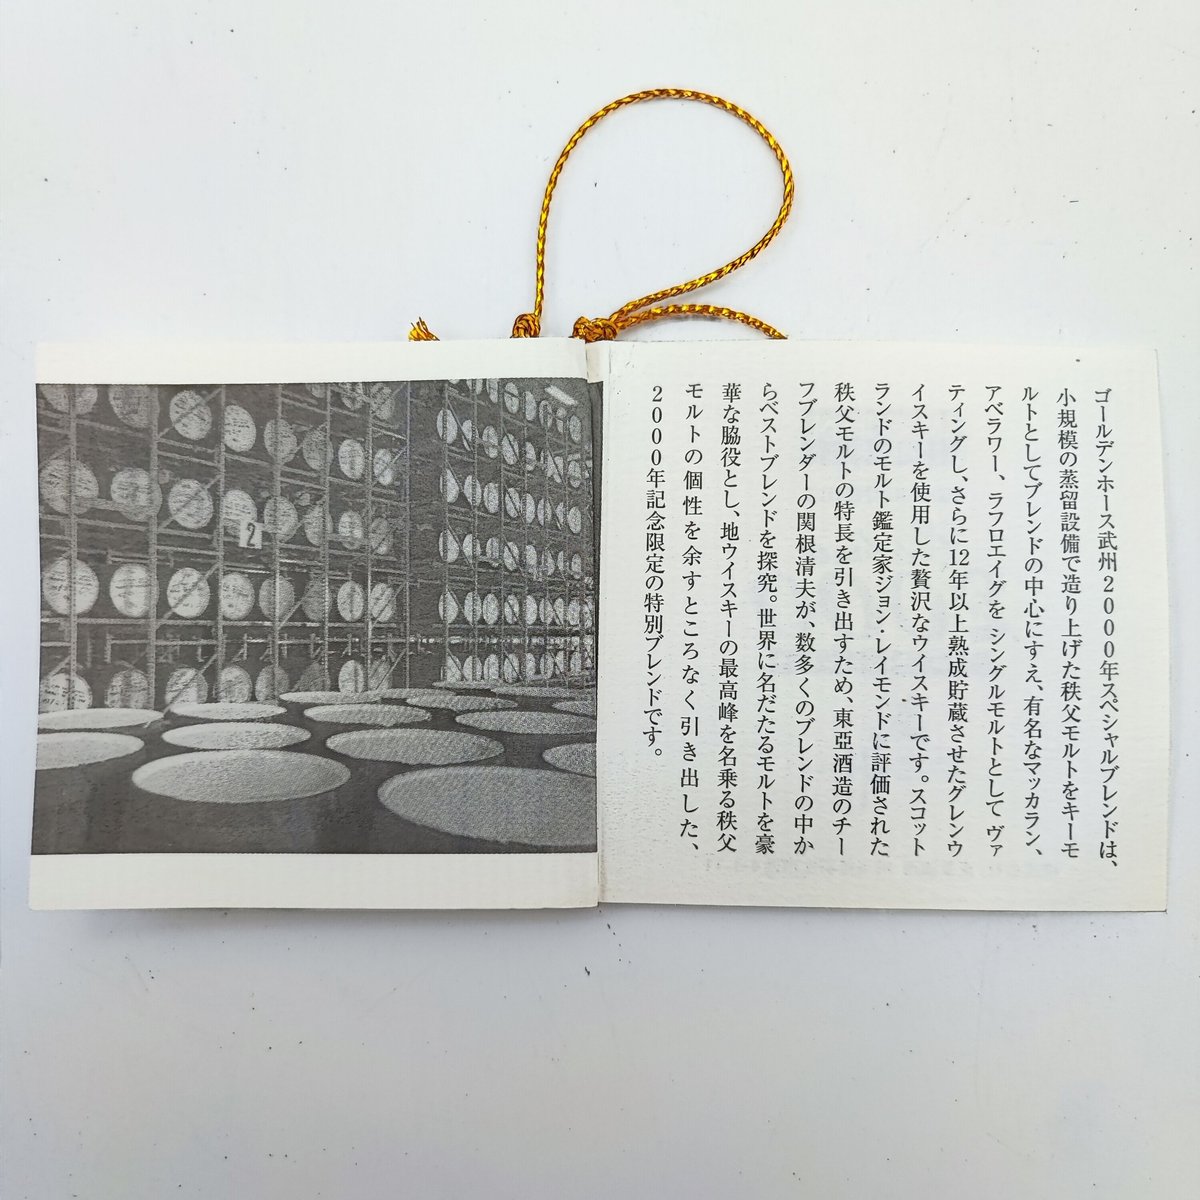 ゴールデンホース武州2000年スペシャルブレンドは、
小規模の蒸留設備で造り上げた秩父モルトをキーモ
ルトとしてブレンドの中心にすえ、有名なマッカラン、
アベラワー、ラフロエイグを シングルモルトとして ヴァ
ティングし、さらに12年以上熟成貯蔵させたグレンウ
イスキーを使用した贅沢なウイスキーです。スコット
ランドのモルト鑑定家ジョン・レイモンドに評価された
秩父モルトの特長を引き出すため、東亞酒造のチー
フブレンダーの関根清夫が、数多くのブレンドの中か
らベストブレンドを探究。世界に名だたるモルトを豪
華な脇役とし、地ウイスキーの最高峰を名乗る秩父
モルトの個性を余すところなく引き出した、
2000年記念限定の特別ブレンドです。
2